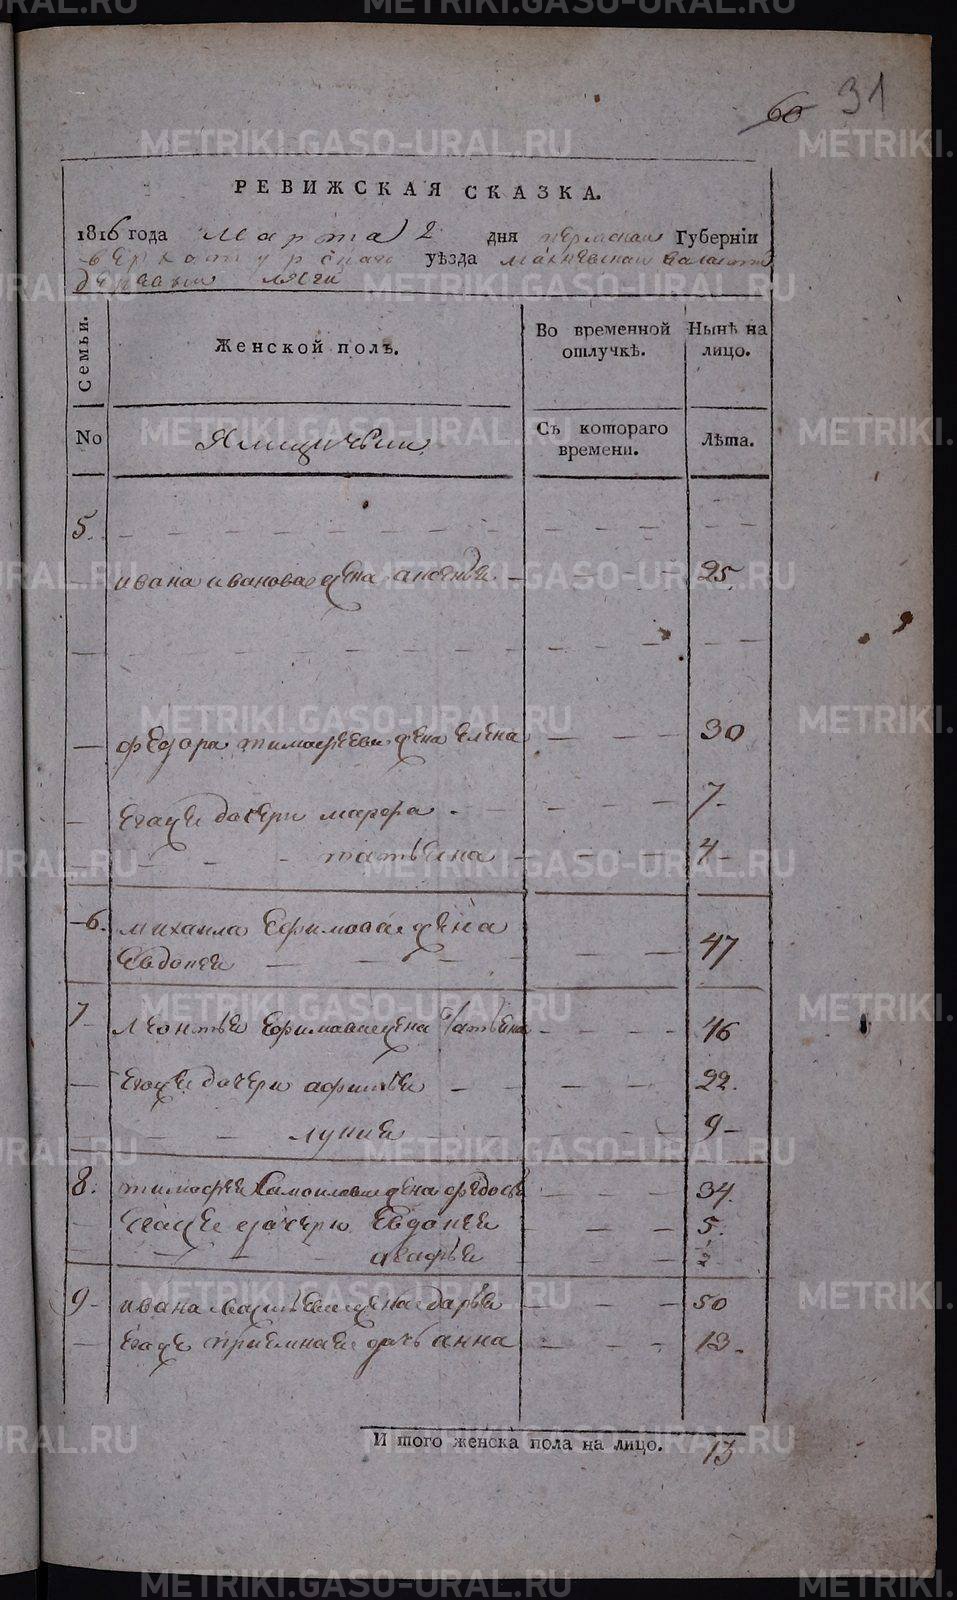 60 31
РЕВИЖСКАЯ СКАЗКА.
1816 года Марта 2 дня пермской Губернїи
верхотурскаго уѣзда махневской валости
деревни
Семьи.
Женской полъ.
Во временной отлучкѣ.
Нынѣ на лицо.
No
Ямщичьи
Съ котораго времени.
Лѣта.
5.
ивана иванова жена аксенья 25
федора тимофеева жена елена 30
егоже дочери марфа 7
татьяна 4
6. михаила Ефимова жена
Евдокея 47
7 леонтья ефимова жена татьяна 46
егоже дочери афимья 22.
лукия 9
8. тимофея Самоилова жена федосья 34.
егоже дочери Евдокея 5.
агафья 2
9 ивана жена дарья 50
егоже приемная дочь анна 13.
И того женска пола на лицо. 13
METRIKI.GASO-URAL.RU